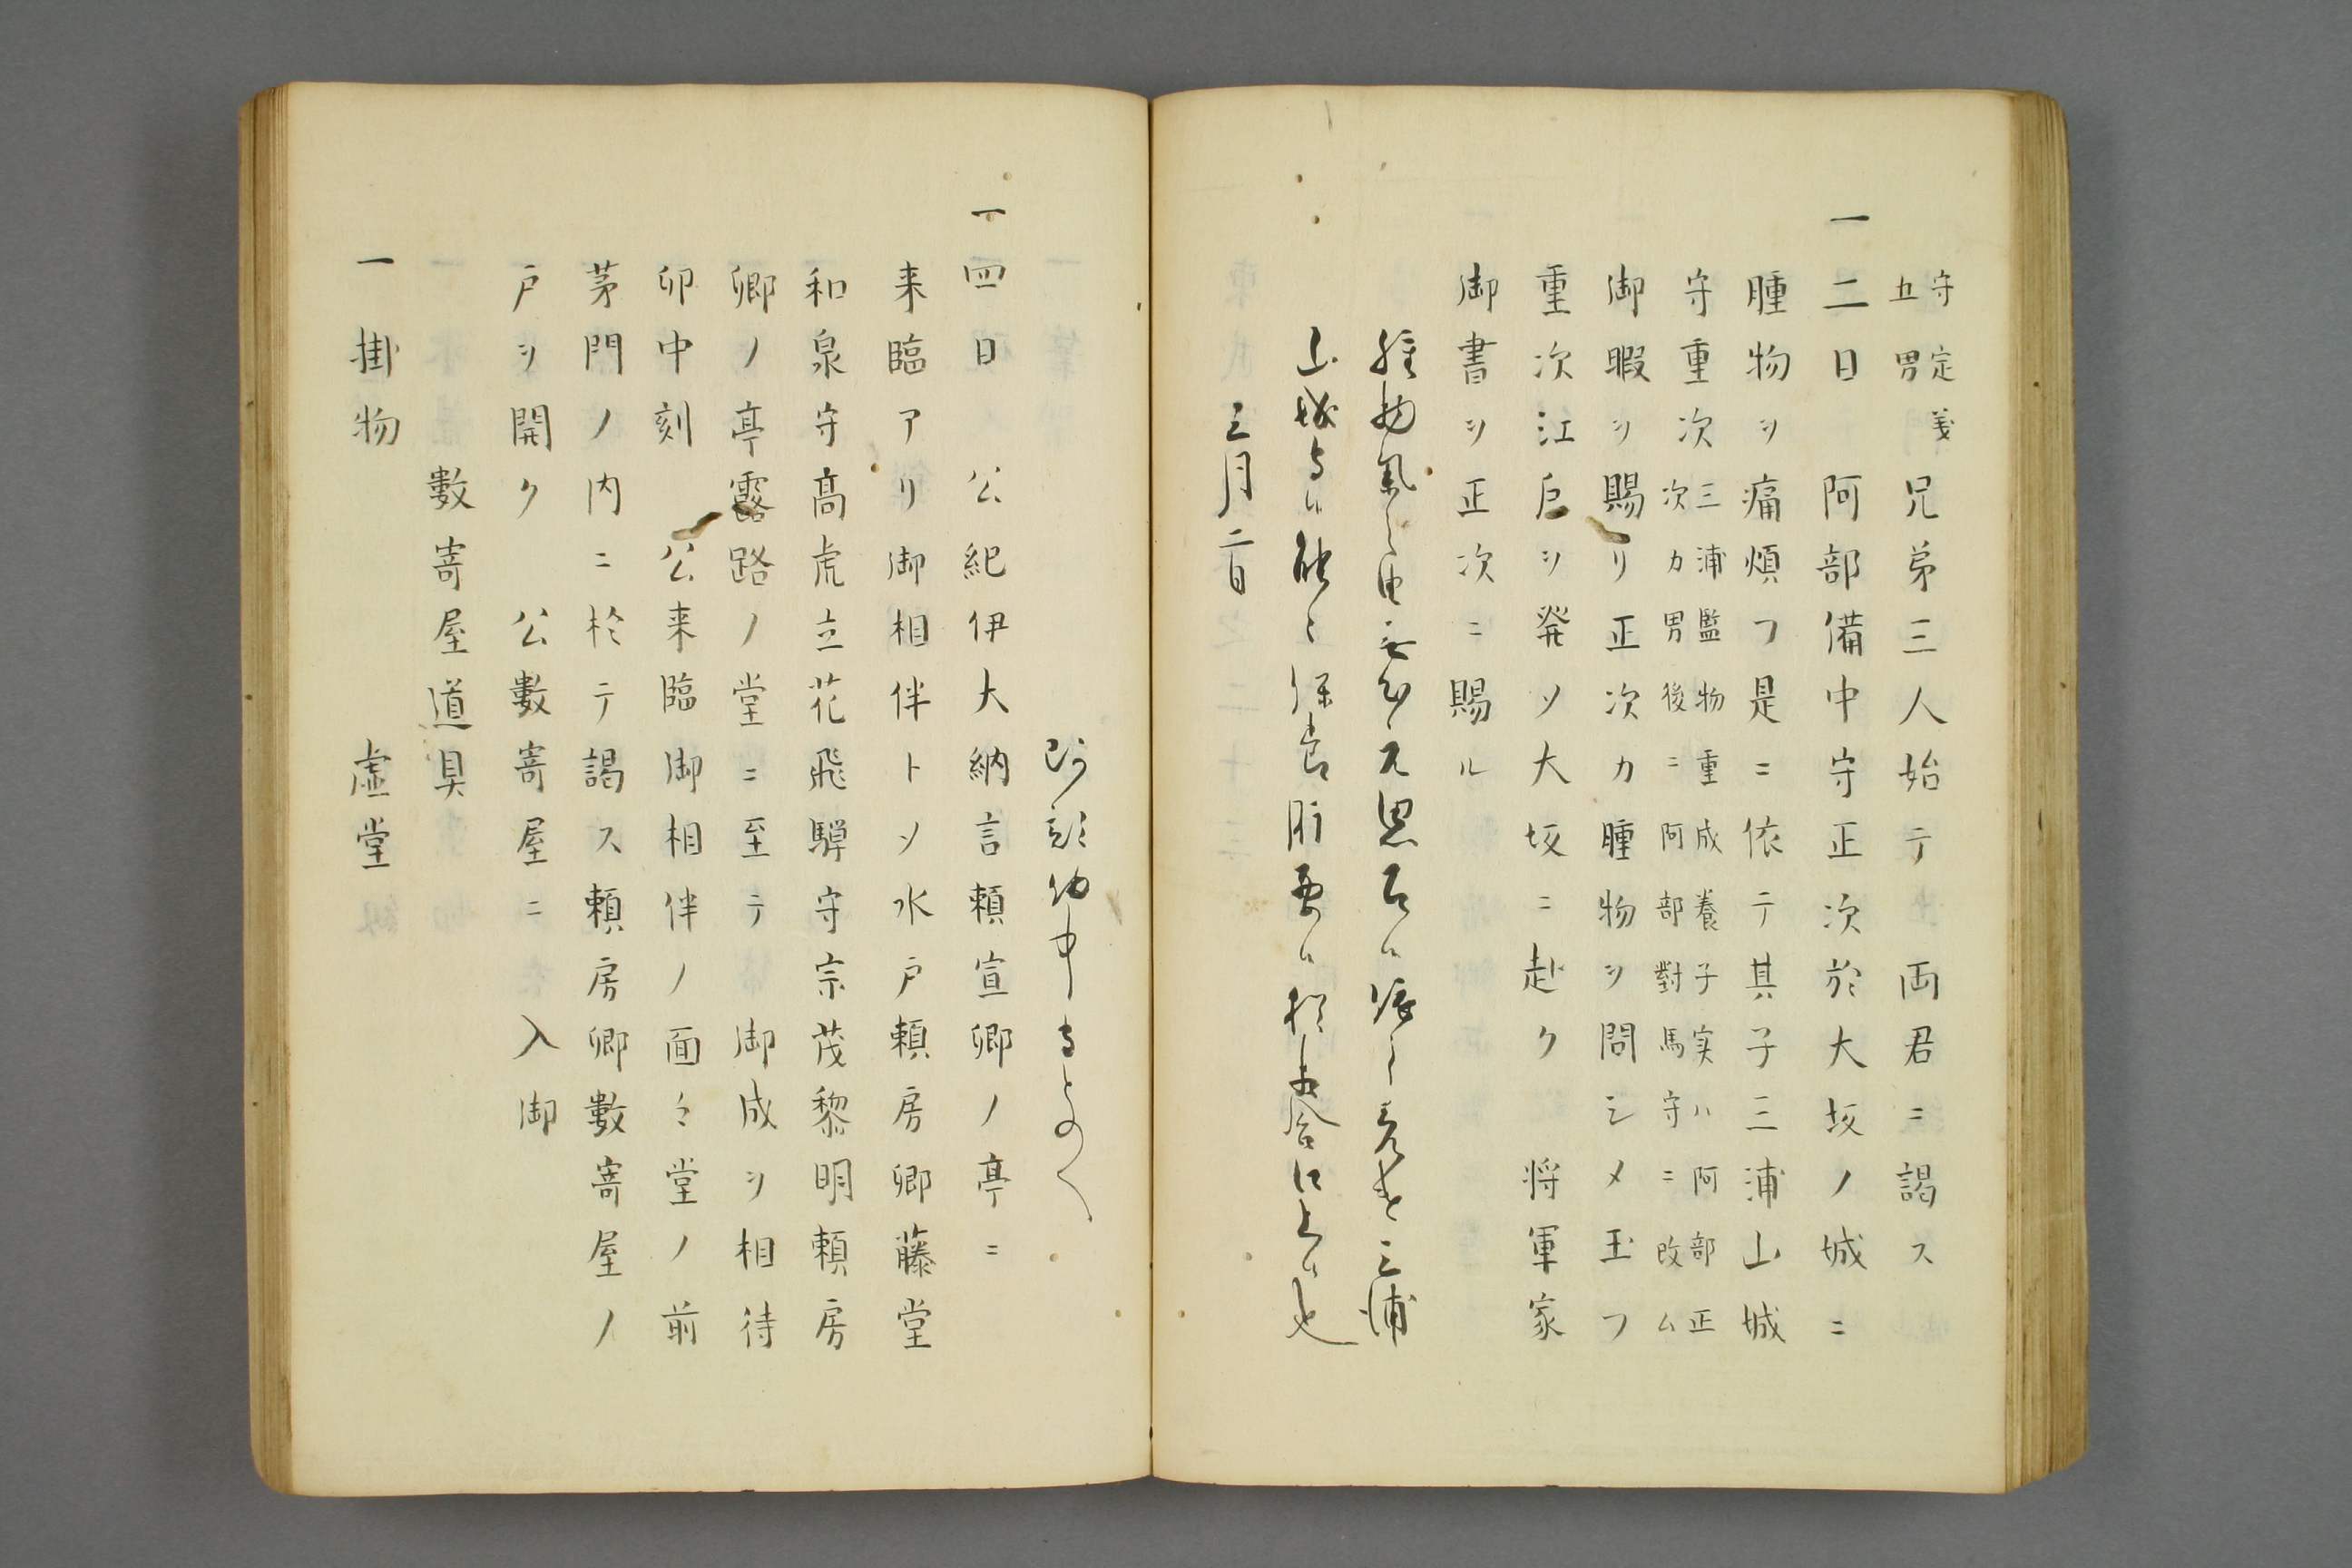 守定義
五男
兄弟三人始テ　両君ニ謁ス
一二日　阿部備中守正次於大坂ノ城ニ
腫物ヲ痛煩フ是ニ依テ其子三浦山城
守重次
三浦監物重成養子実ハ阿部正
次カ男後ニ阿部對馬守ニ改ム
御暇ヲ賜リ正次カ腫物ヲ問シメ玉フ
重次江戸ヲ発ソ大坂ニ赴ク　将軍家
御書ヲ正次ニ賜ル
腫物氣之由
三浦
山城守
保養肝要候
口上候也
三月二日
阿部備中守とのへ
一四日　公紀伊大納言頼宣卿ノ亭ニ
来臨アリ御相伴トソ水戸頼房卿藤堂
和泉守高虎立花飛騨守宗茂黎明頼房
卿ノ亭露路ノ堂ニ至テ　御成ヲ相待
卯中刻　公来臨御相伴ノ面々堂ノ前
茅門ノ内ニ於テ謁ス頼房卿數寄屋ノ
戸ヲ開ク　公數寄屋ニ　入御
數寄屋道具
一掛物　虚堂